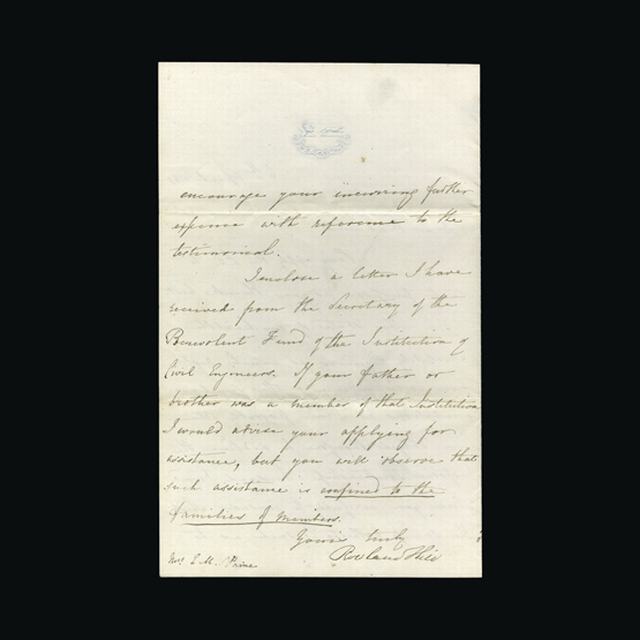 encourage your incurring further
expense with reference to the
testimonial.
I enclose a letter I have
received from the Secretary of the
Benevolent Fund of the Institution of
Civil Engineers. If your father or
brother was a member of that Institution
I would advise your applying for
assistance, but you will observe that
such assistance is confined to the
families of members.
Yours truly
Rowland Hill
E. M. Prine